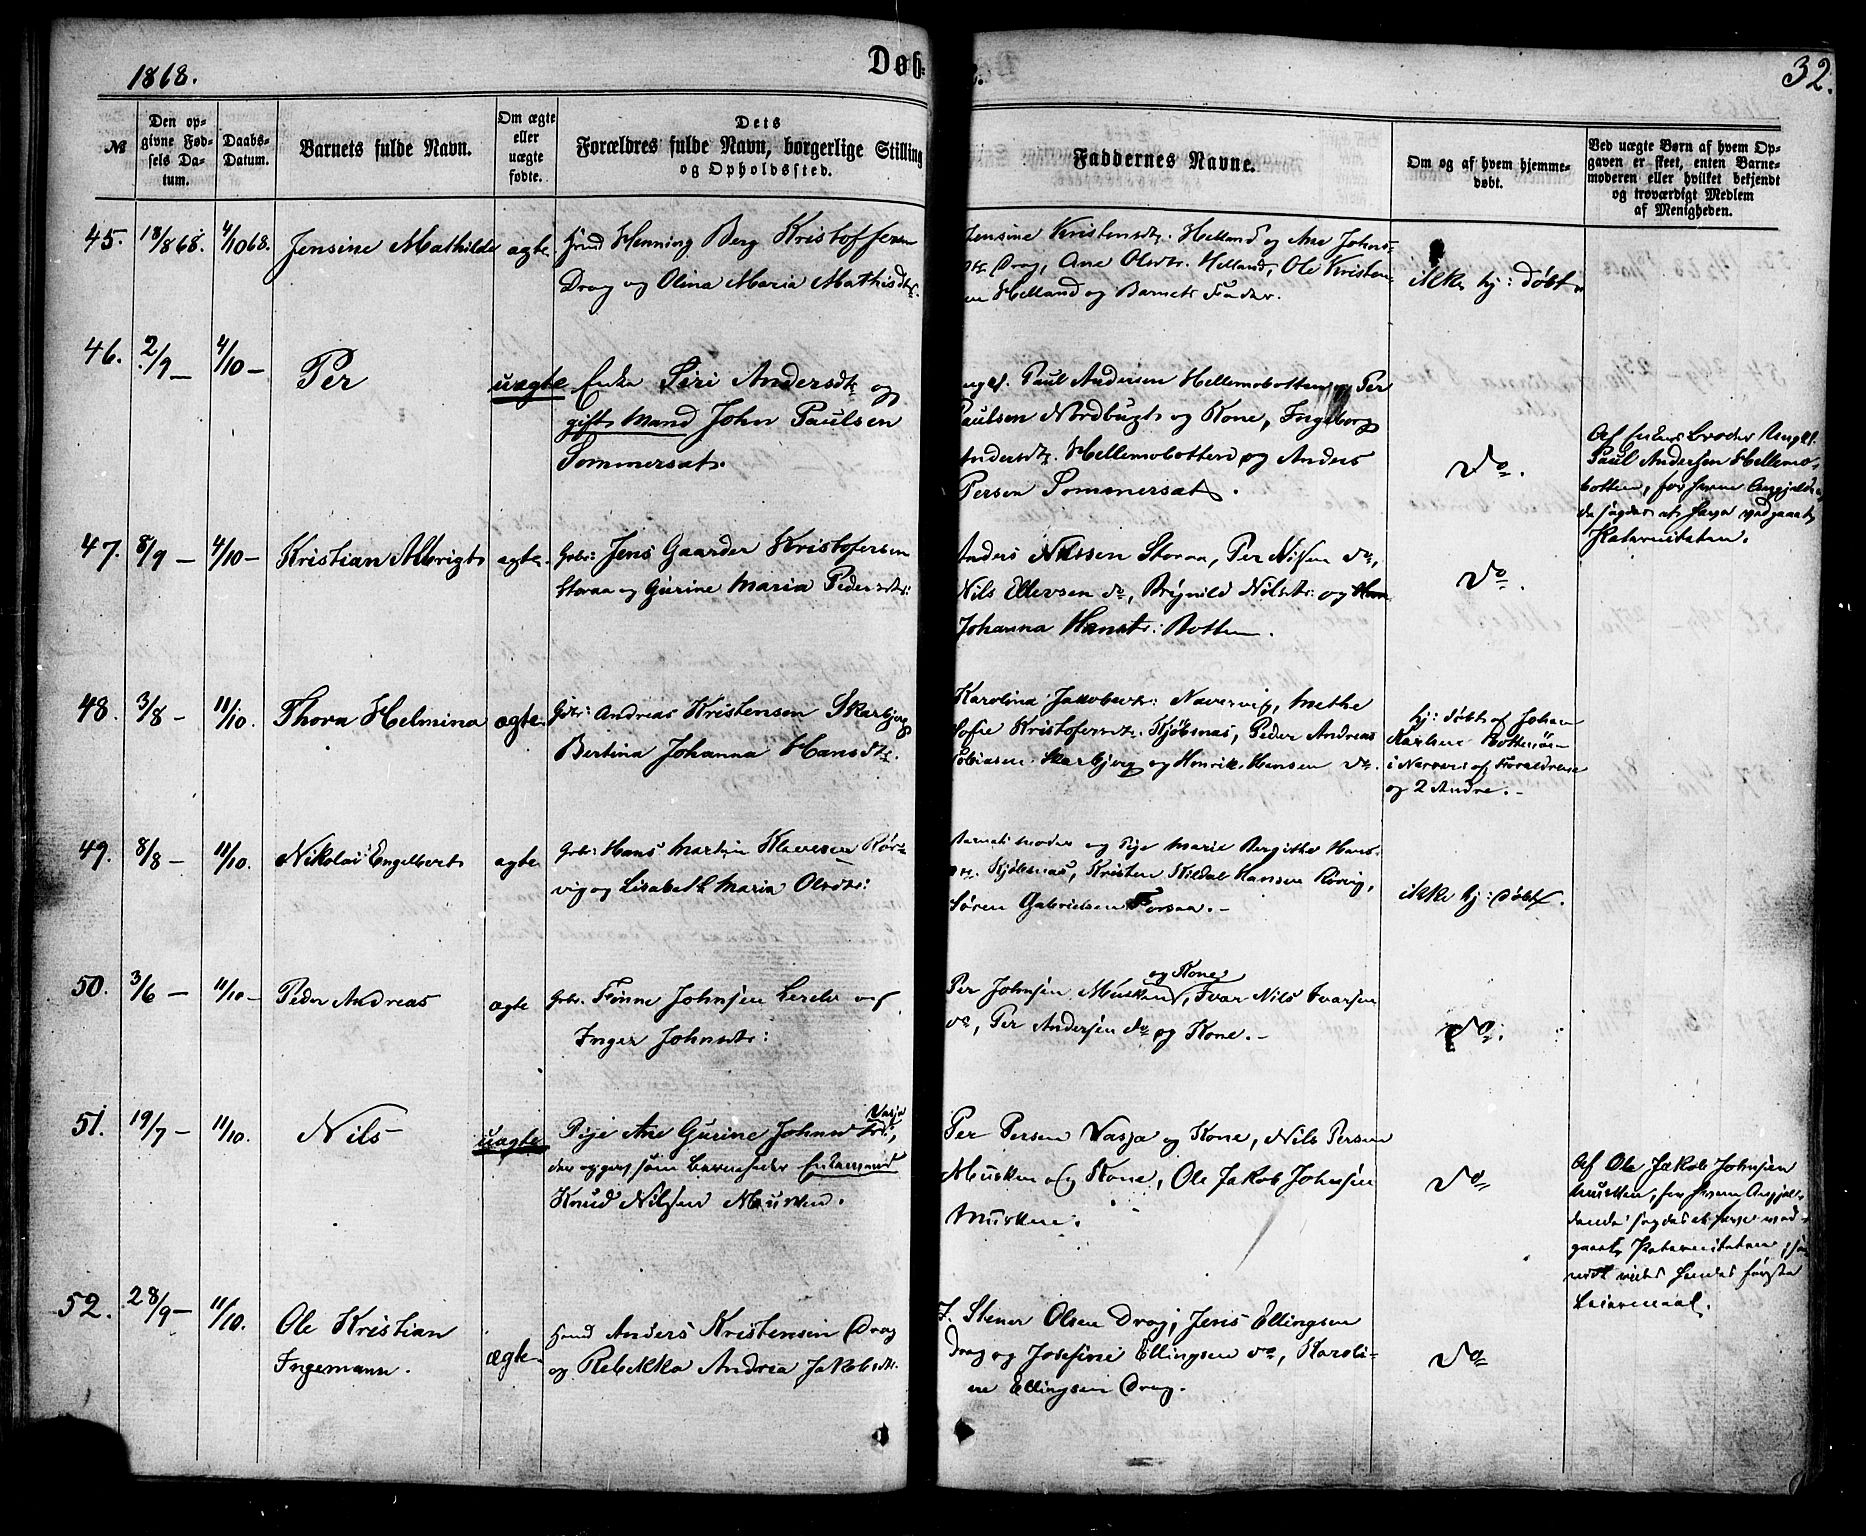 1868.
Døb=
32.
№
Den op-
givne Fød-
sels Da-
tum.
Daabs-
Datum.
Barnets fulde Navn.
Om ægte
eller
uægte
fødte.
Dets
Forældres fulde Navn, borgerlige Stilling
og Opholdssted.
Faddernes Navne.
Om og af hvem hjemme-
døbt.
Ved uægte Børn af hvem Op-
gaven er skeet, enten Barne-
moderen eller hvilket bekjendt
og troværdigt Medlem
af Menigheden.
45. 18/8 68. 4/10 68. Jensine Mathilde ægte Henning Berg Kristoffersen
Drag og Olina Maria Mathisdtr.
Jensine Kristensdtr. Helland og Ane Johns-
dtr. Drag, Ane Olsdtr. Helland, Ole Kristen-
en Helland og Barnets Fader.
ikke hj: døbt.
46. 2/9 – 4/10 – Per uægte Enke Siri Andersdtr og
gift Mand John Paulsen
Sommersæt.
ungk. Paul Andersen Hellemobotten og Per
Paulsen Nordbugt og Kone, Ingeborg
Andersdtr. Hellemobotten og Anders
Persen Sommersæt.
do.
Af Enkens Broder Ungk.
Paul Andersen Hellemo-
botten, for hvem Angjælden-
de sagdes at have vedgaaet
Paterniteten.
47. 8/9 – 4/10 – Kristian Albrigt ægte Grbr: Jens Gaarder Kristofersen
Storaa og Gurine Maria Pedersdtr:
Anders Nilssen Storaa, Per Nilsen do,
Nils Ellevsen do, Brynild Nilsdtr: og
Johanna Hansdtr: Botten.
do.
48. 3/8 – 11/10. Thora Helmina ægte Andreas Kristensen Skarbjerg
Bertina Johanna Hansdtr.
Karolina Jakobsdtr: Navervig, Methe
Sofie Kristofersdtr. Kjøbsnæs, Peder Andreas
Tobiasen Skarbjerg og Henrik Hansen do.
hj: døbt af Johan
Karlsen
i Nærvær: af Forældrene
og 2 Andre. –
49. 8/8 – 11/10. Nikolai Engelbert ægte Grbr: Hans Martin Klausen Rør-
vig og Lisabeth Maria Olsdtr:
Barnets Moder og Pige Marie Bergithe Hans-
dtr. Kjøbsnæs, Kristen Kildal Hansen Rørvig,
Søren Gabrielsen Forsaa. –
ikke hj: døbt.
50. 3/6 – 11/10 – Peder Andreas ægte Grbr. Finne Johnsen og
Inger Johnsdtr:
og Kone
Per Johnsen Musken, Ivar Nils Ivarsen
do, Per Andersen do og Kone. –
do.
51. 19/7 – 11/10. Nils uægte Pige Ane Gurine Johnsdtr, Vasja
der opgav som Barnefader Enkemand
Knud Nilsen Musken.
Per Persen Vasja og Kone, Nils Persen
Musken og Kone, Ole Jakob Johnsen
Musken.
do
Af Ole Jakob Johnsen
Musken, for hvem Angjæl-
dende sagdes at have ved-
gaaet Paterniteten,
hendes første
Leiermaal.
52. 28/9 – 11/10. Ole Kristian
Ingemann. ægte Anders Kristensen Drag
og Rebekka Andrea Jakobsdtr.
Stener Olsen Drag, Jens Ellingsen
Drag og Josefine Ellingsen do, Karoli-
ne Ellingsen Drag.
do